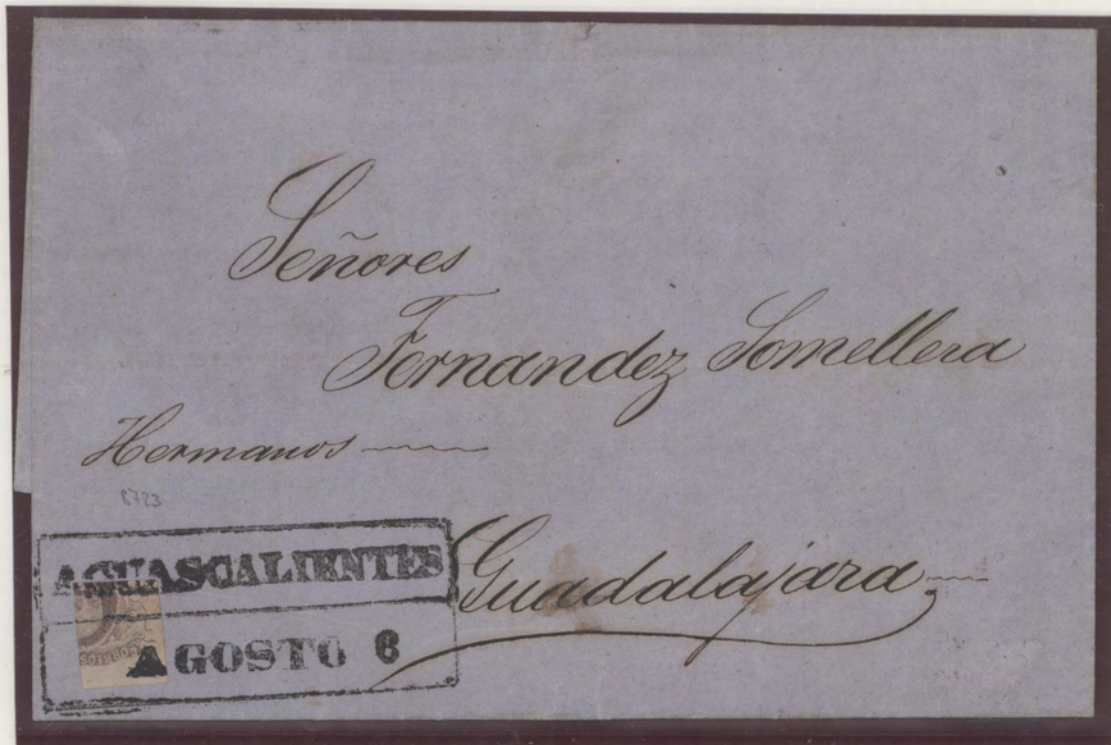 Señores
Fernandez Somellera
Hermanos
8723
AGUASCALIENTES
AGOSTO 6
Guadalajara
CORREOS